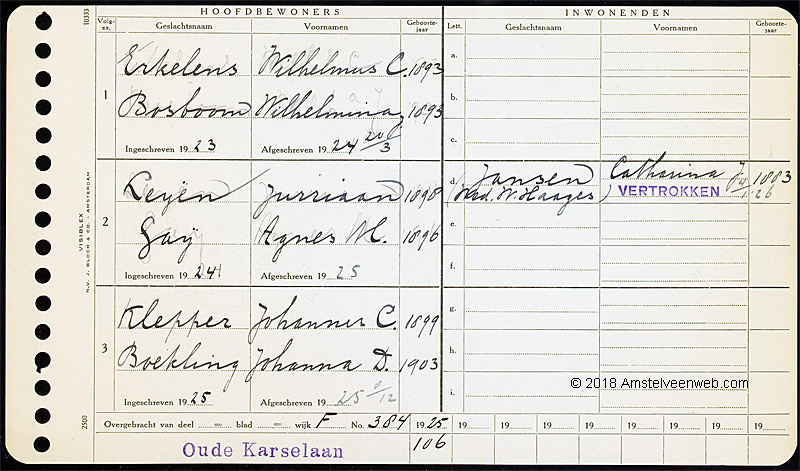 HOOFDBEWONERS INWONENDEN
Volg-nr. Geslachtsnaam Voornamen Geboorte-jaar Lett. Geslachtsnaam Voornamen Geboorte-jaar
10333
1
Erkelens Wilhelmus C. 1893
Bosboom Wilhelmina 1893
Ingeschreven 19 23 Afgeschreven 19 24 20/3
a.
b.
c.
2
Leyen Jurriaan 1898
Gaÿ Agnes M. 1896
Ingeschreven 19 24 Afgeschreven 19 25
d. Jansen Catharina J. 1883
(Wed. W. Haages) VERTROKKEN
e.
f.
3
Klepper Johannes C. 1899
Boekling Johanna D. 1903
Ingeschreven 19 25 Afgeschreven 19 25
g.
h.
i.
© 2018 Amstelveenweb.com
VISIBLEX
N.V. J. BLOCH & CO. - AMSTERDAM
2500
Overgebracht van deel - blad - wijk F No. 384 1925 19 19 19 19 19 19 19 19
Oude Karselaan 106